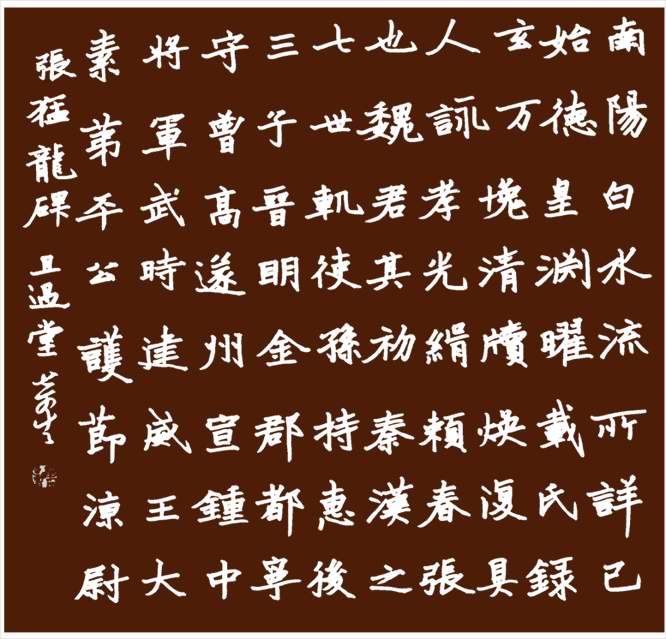 南陽白水流所詳已
始徳皇渊曜載氏録
玄万塊清牘煥復具
人詠孝光緝頼春張
也魏君其初秦漢之
七世軌使孫持惠後
三子晋明金郡都寧
守曾高遂州宣鍾中
將軍武時建威王大
素苐平公護節涼尉
張猛龍碑 且過堂